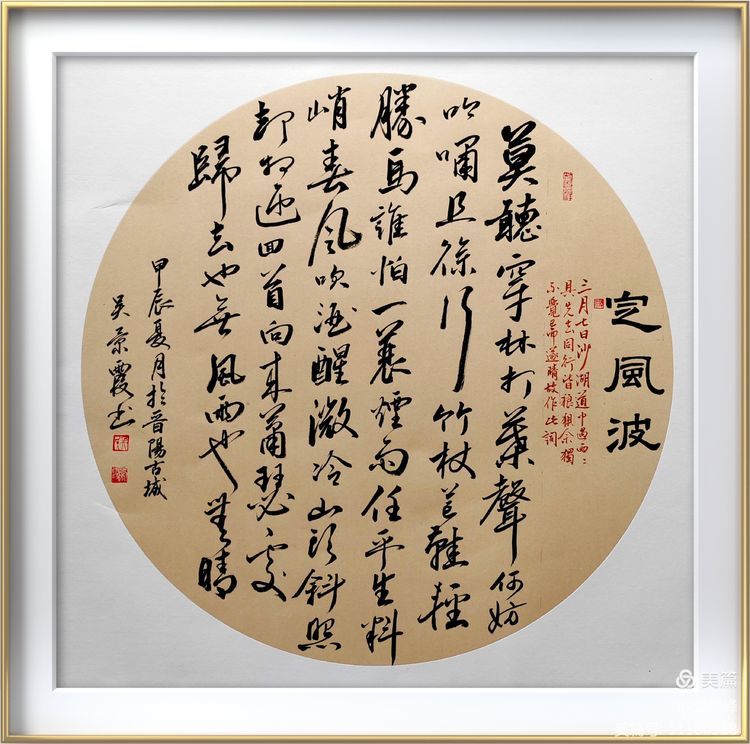 定風波
三月七日沙湖道中遇雨〻
具先去同行皆狼狽余獨
不覺已而遂晴故作此詞
莫聽穿林打葉聲何妨
吟嘯且徐行竹杖芒鞋輕
勝馬誰怕一蓑煙雨任平生料
峭春風吹酒醒微冷山头斜照
却相迎回首向來蕭瑟處
歸去也無風雨也無晴
甲辰夏月於晉陽古城
吴景霞书
美篇